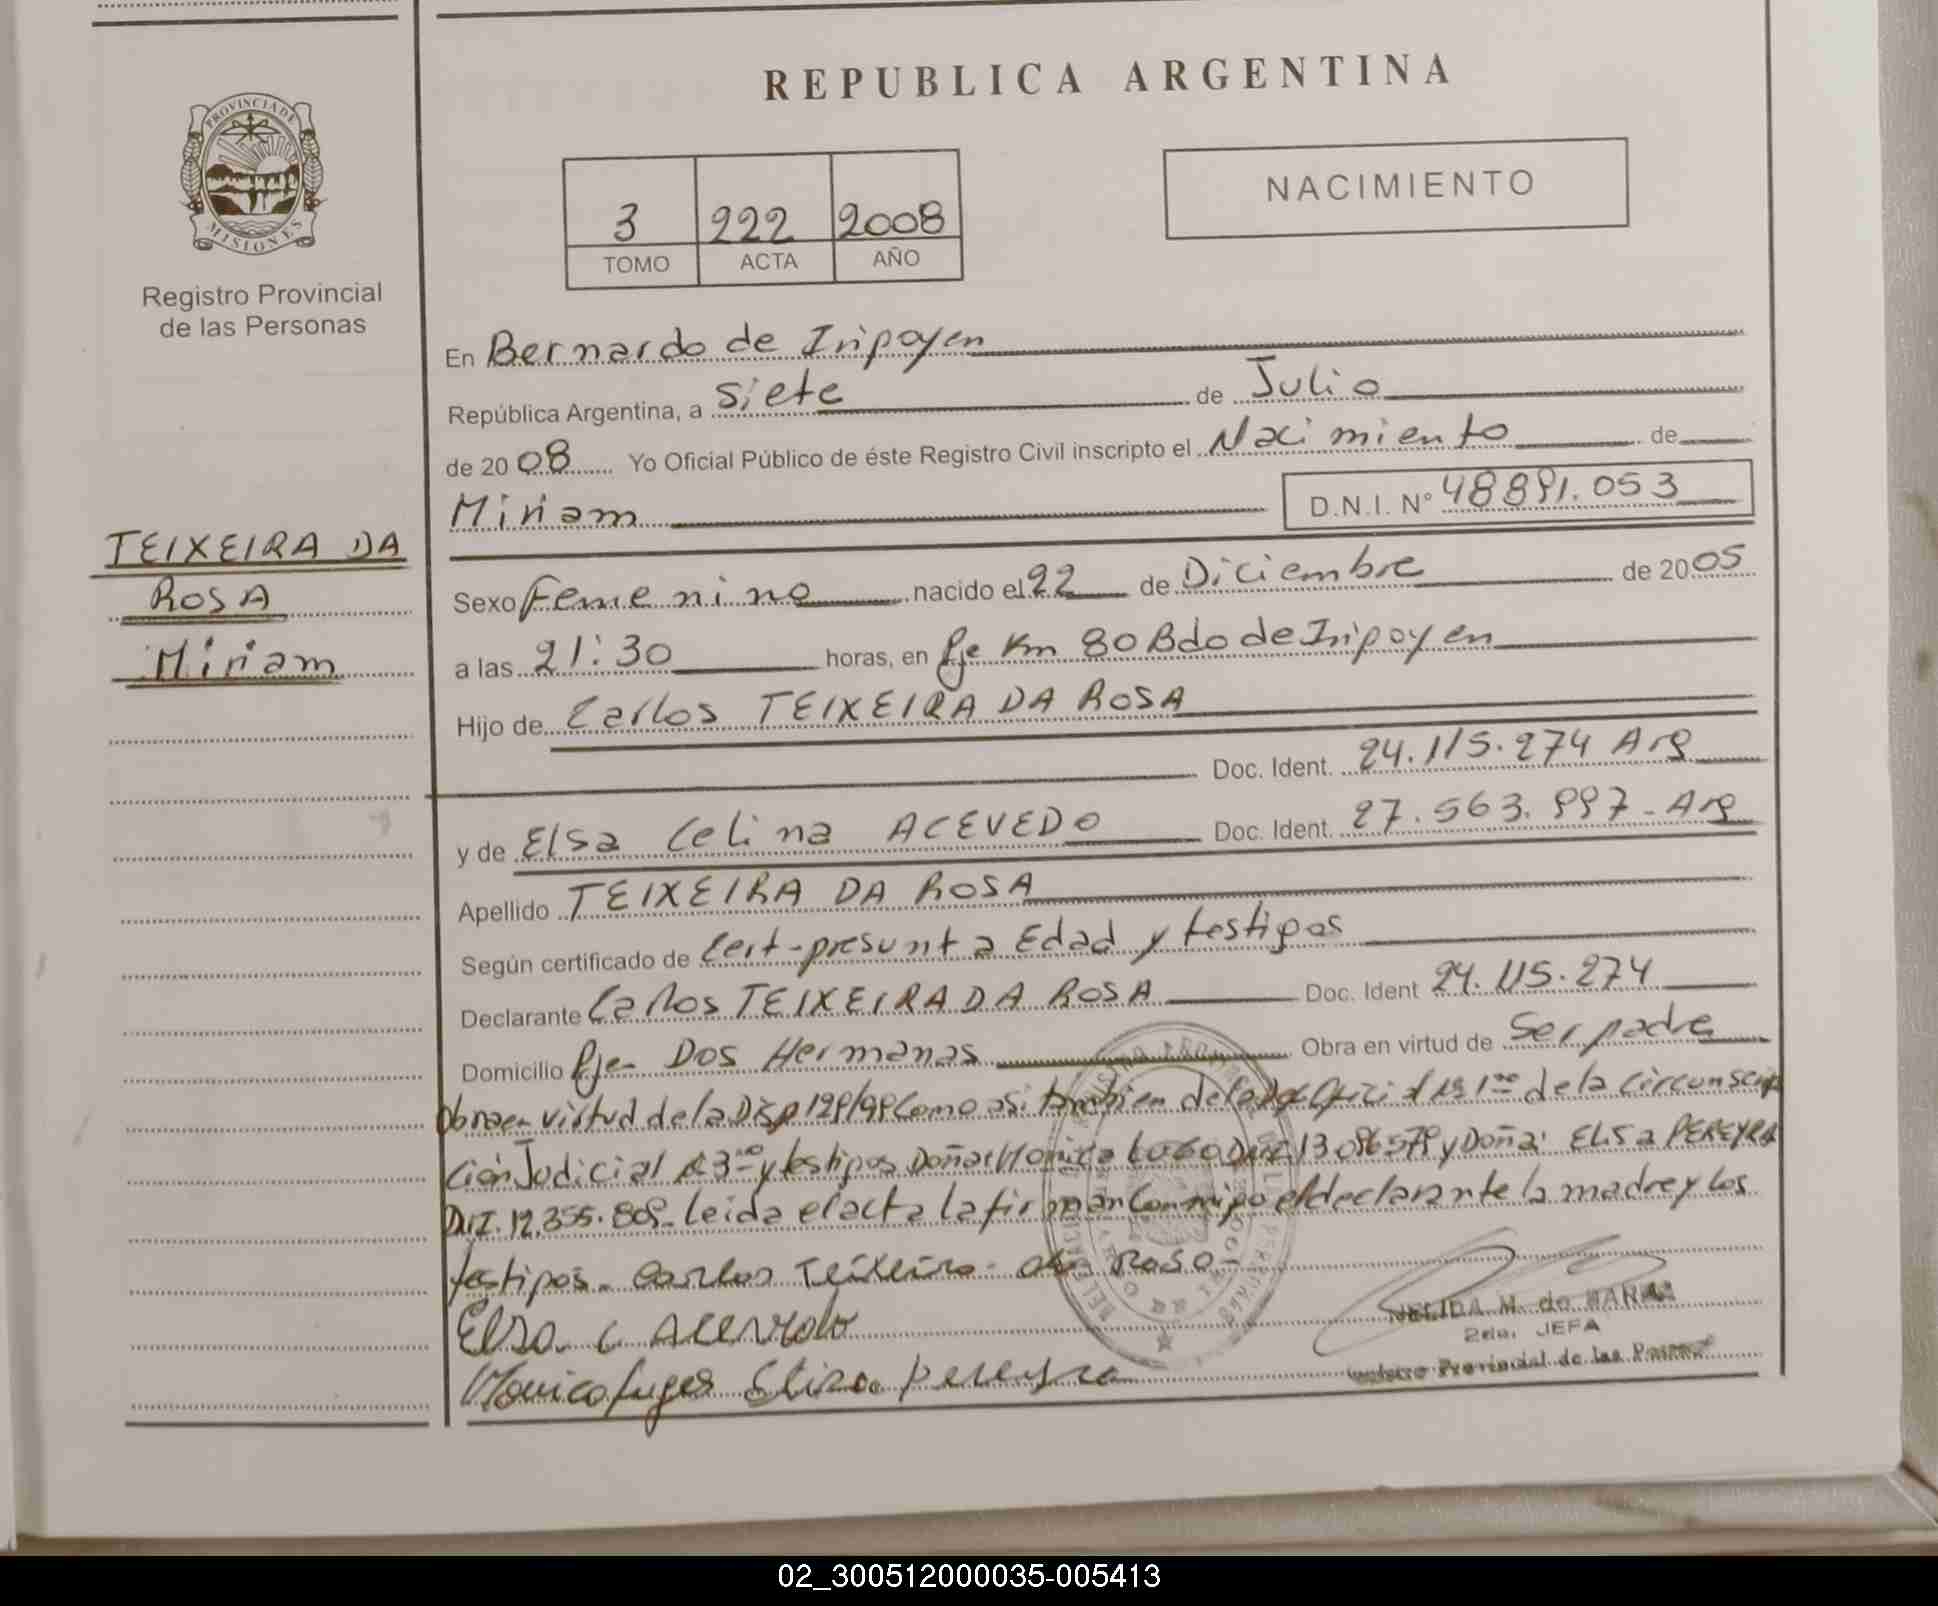 REPUBLICA ARGENTINA
PROVINCIA DE MISIONES
Registro Provincial
de las Personas
NACIMIENTO
3 222 2008
TOMO ACTA AÑO
En Bernardo de Iripoyen
República Argentina, a siete de Julio
de 2008 Yo Oficial Público de éste Registro Civil inscripto el Nacimiento de
Miriam D.N.I. Nº 48891.053
TEIXEIRA DA
ROSA
Miriam
Sexo Femenino nacido el 22 de Diciembre de 2005
a las 21:30 horas, en Pje Km 80 Bdo de Iripoyen
Hijo de Carlos TEIXEIRA DA ROSA
Doc. Ident. 24.115.274 Arg
y de Elsa Celina ACEVEDO Doc. Ident. 27.563.997- Arg
Apellido TEIXEIRA DA ROSA
Según certificado de Cert-presunta Edad y testigos
Declarante Carlos TEIXEIRA DA ROSA Doc. Ident 24.115.274
Domicilio Pje- Dos Hermanas Obra en virtud de Ser padre
Obra en virtud de la Disp 129/99 Como asi tambien de la de la Circunscrip
ción Judicial y testigos Doña Monica y Doña: Elisa PEREYRA
12.355.809- leida el acta la firman Conmigo el declarante la madre y los
testigos- Carlos Teixeira da Rosa-
Elsa C Acevedo
Monica Lugo Elisa Pereyra
NELIDA M. de
2da. JEFA
Provincial de las
02_300512000035-005413